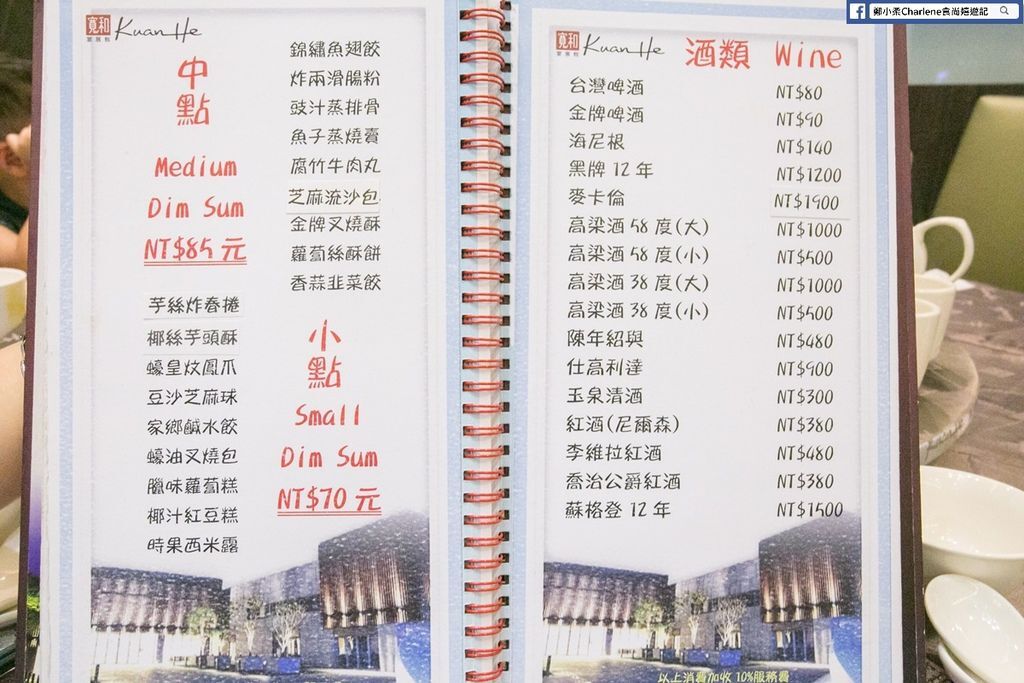 鄭小柔Charlene食尚嬉遊記
寬和
宴展館
Kuan He
中
點
Medium
Dim Sum
NT$85元
錦繡魚翅餃
炸兩滑腸粉
豉汁蒸排骨
魚子蒸燒賣
腐竹牛肉丸
芝麻流沙包
金牌叉燒酥
蘿蔔絲酥餅
香蒜韭菜餃
小
點
Small
Dim Sum
NT$70元
芋絲炸春捲
椰絲芋頭酥
蠔皇炆鳳爪
豆沙芝麻球
家鄉鹹水餃
蠔油叉燒包
臘味蘿蔔糕
椰汁紅豆糕
時果西米露
寬和
宴展館
Kuan He
酒類 Wine
台灣啤酒 NT$80
金牌啤酒 NT$90
海尼根 NT$140
黑牌 12 年 NT$1200
麥卡倫 NT$1900
高梁酒 58 度(大) NT$1000
高梁酒 58 度(小) NT$500
高梁酒 38 度(大) NT$1000
高梁酒 38 度(小) NT$500
陳年紹興 NT$480
仕高利達 NT$900
玉泉清酒 NT$300
紅酒(尼爾森) NT$380
李維拉紅酒 NT$480
喬治公爵紅酒 NT$380
蘇格登 12 年 NT$1500
以上消費加收 10%服務費